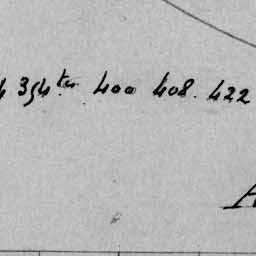 354ter 400 408. 422
A